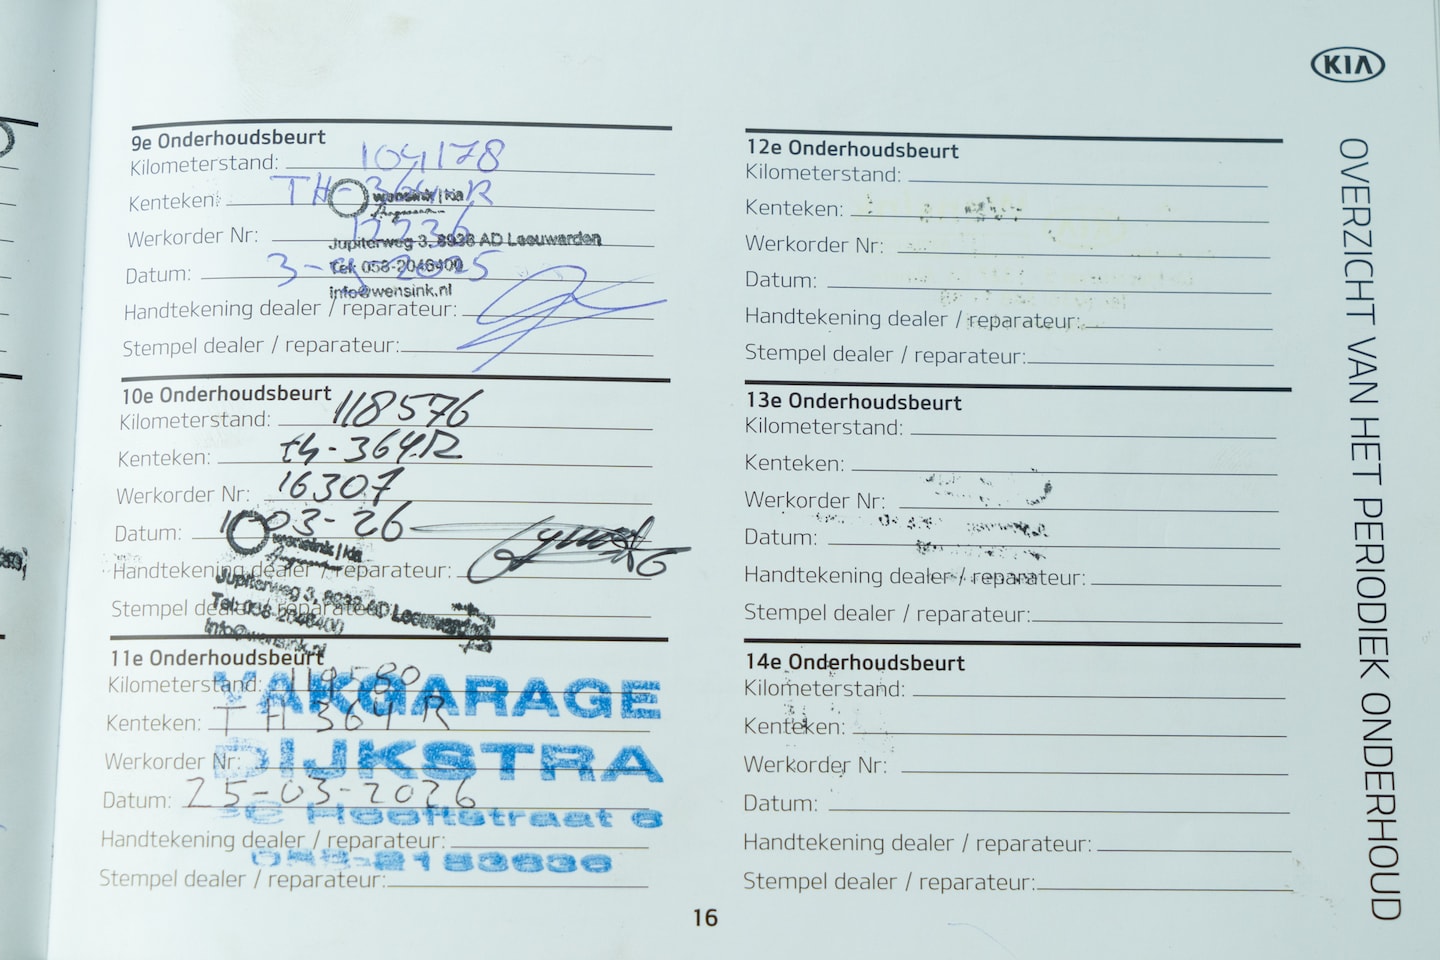 KIA
OVERZICHT VAN HET PERIODIEK ONDERHOUD
9e Onderhoudsbeurt
Kilometerstand: 104178
Kenteken: TH-364-R
wensink | kia
Werkorder Nr: 12236
Jupiterweg 3, 8938 AD Leeuwarden
Datum: 3- -2025
Tel: 058-2046400
info@wensink.nl
Handtekening dealer / reparateur:
Stempel dealer / reparateur:
10e Onderhoudsbeurt
Kilometerstand: 118576
Kenteken: th-364-R
Werkorder Nr: 16307
Datum: 10-03-26
wensink | kia
Handtekening dealer / reparateur:
Jupiterweg 3, 8938 AD Leeuwarden
Stempel dealer / reparateur:
Tel: 058-2046400
info@wensink.nl
11e Onderhoudsbeurt
Kilometerstand: 119580
VAKGARAGE
Kenteken: TH 364 R
Werkorder Nr:
DIJKSTRA
Datum: 25-03-2026
PC Hooftstraat 6
Handtekening dealer / reparateur:
Stempel dealer / reparateur:
12e Onderhoudsbeurt
Kilometerstand:
Kenteken:
Werkorder Nr:
Datum:
Handtekening dealer / reparateur:
Stempel dealer / reparateur:
13e Onderhoudsbeurt
Kilometerstand:
Kenteken:
Werkorder Nr:
Datum:
Handtekening dealer / reparateur:
Stempel dealer / reparateur:
14e Onderhoudsbeurt
Kilometerstand:
Kenteken:
Werkorder Nr:
Datum:
Handtekening dealer / reparateur:
Stempel dealer / reparateur:
16